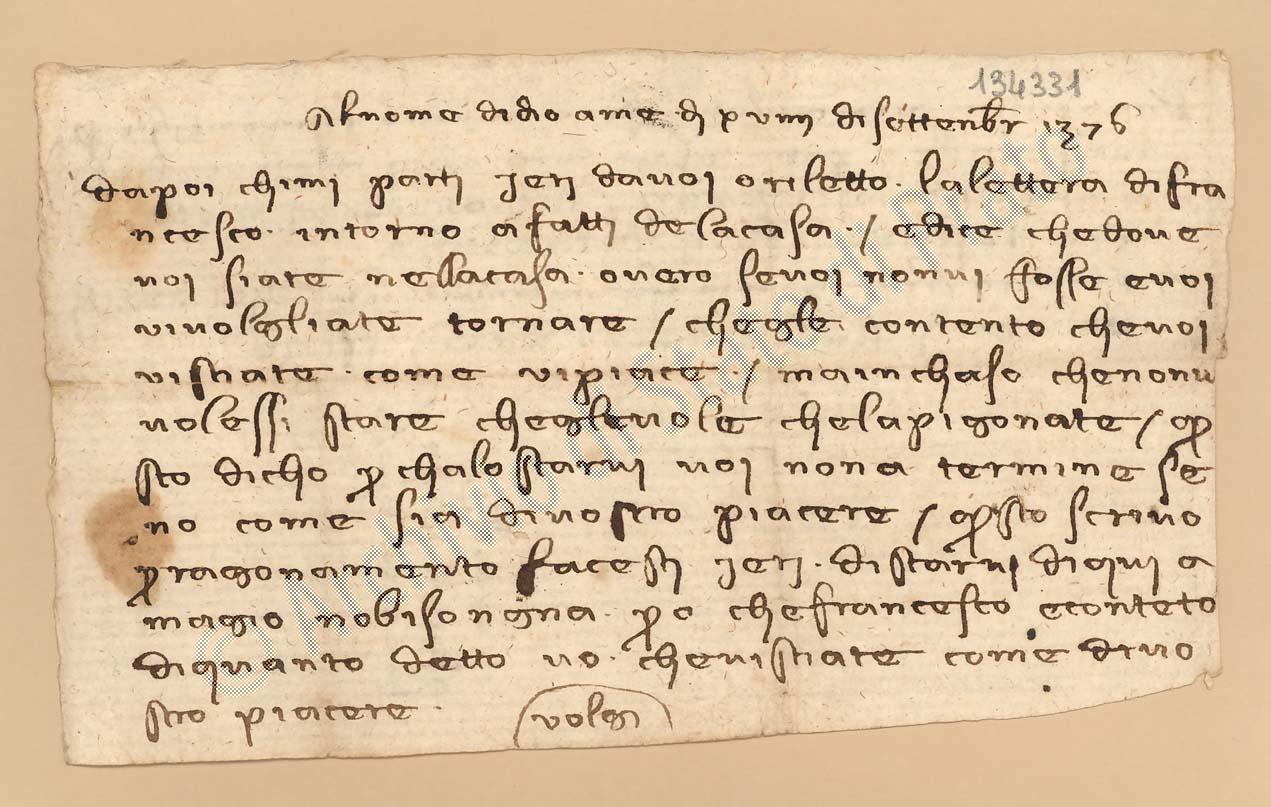 134331
Al nome di dio ame. dì xviiii di settenbr 1376
da poi chimi parti jeri da voi o riletto. la lettera di fra
ncesco. intorno a fatti de la casa. / e dice che dove
voi siate nella casa. overo se voi non vi fosse e voi
vi volgliate tornare / che gle contento che voi
vi stiate. come vi piace. / ma in chaso che non vi
volessi stare che gle vole che la pigonate /
sto dicho p chalo starvi voi non a termine se
no come sia di vostro piacere / sto scrivo
p ragonamento facesti jeri. di starvi di qui a
magio no bisongna. p o che francesco e conteto
di quanto detto vo. che vi stiate come di vo
stro piacere.
volgi
© Archivio di Stato di Prato